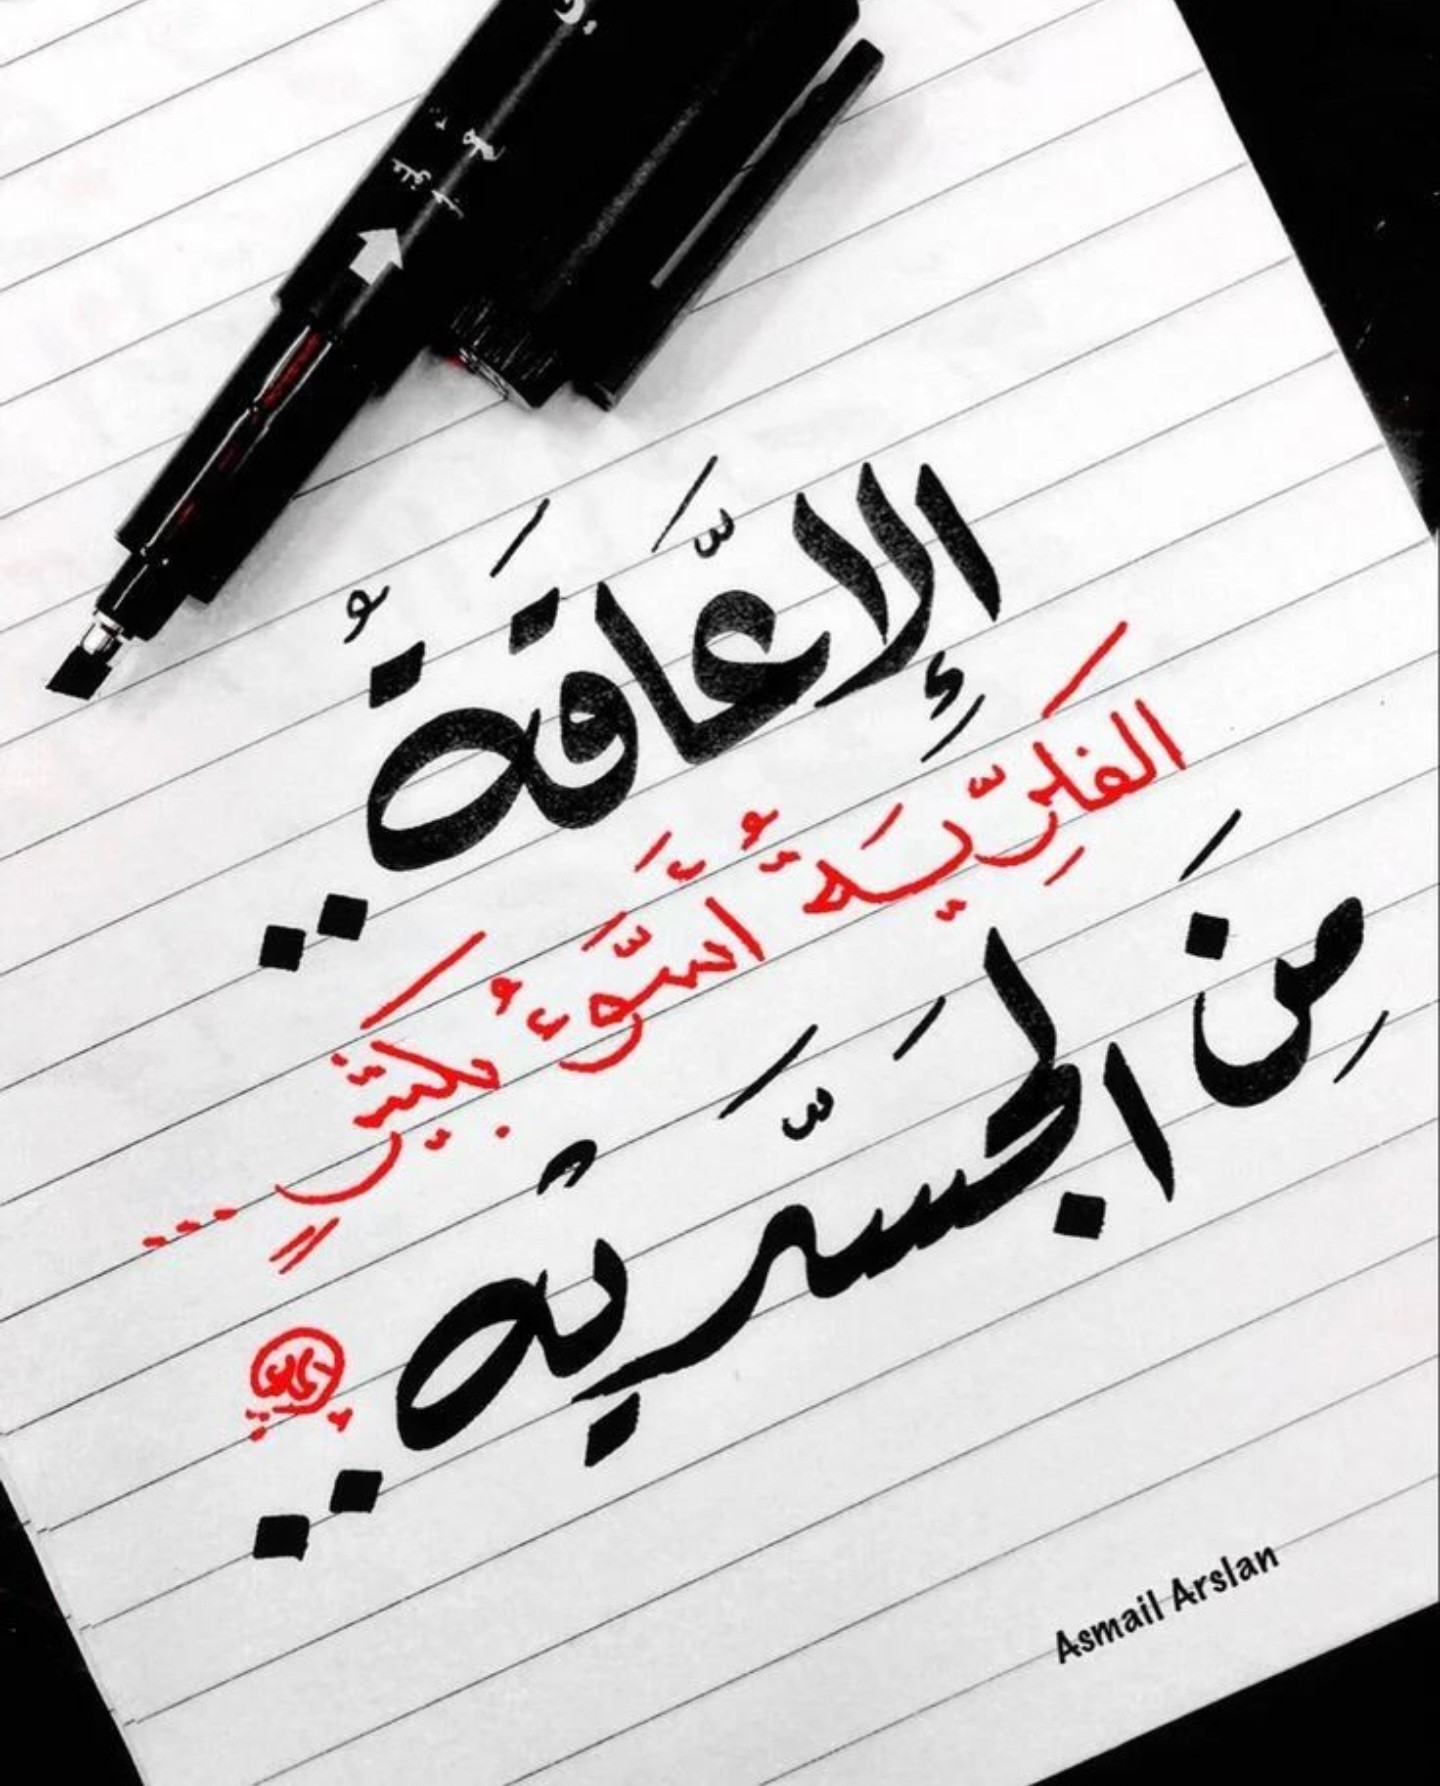 الإعَّاقَةُ ..
الفكِرّيَةُ أسَّوَّءُ بكَثيٍر ...
مِنَ الجَسَّدَية ..
Asmail Arslan